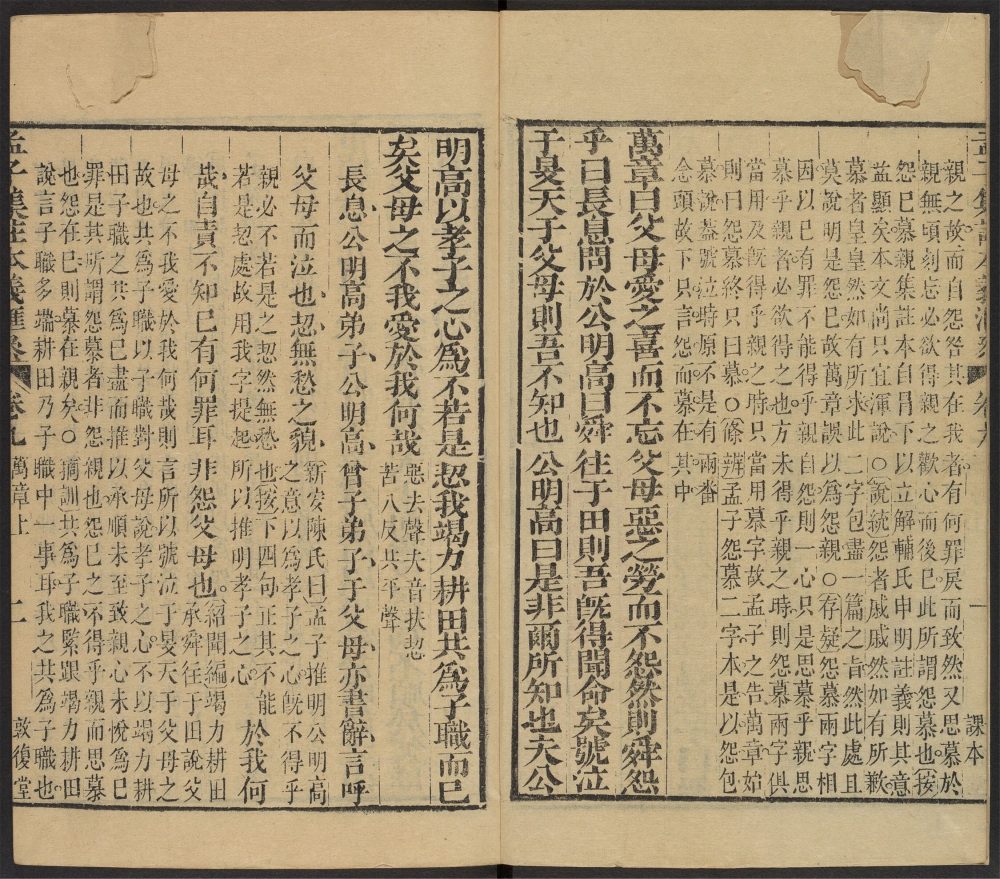 孟子集註本義滙參 卷九 一 課本
親之故而自怨咎其在我者有何罪戾而致然又思慕於
親無頃刻忘必欲得親之歡心而後已此所謂怨慕也按
怨已慕親集註本自冐下以立解輔氏申明註義則其意
益顯矣本文尚只宜渾說○說統怨者戚戚然如有所歉
慕者皇皇然如有所求此二字包盡一篇之旨然此處且
莫說明是怨已故萬章誤以為怨親○存疑怨慕兩字相
因以已有罪不能得乎親而自怨則一心只是思慕乎親思
慕乎親者必欲得之也方未得乎親之時則怨慕兩字俱
當用及旣得乎親之時只當用慕字故孟子之告萬章始
則曰怨慕終只曰慕○條辨孟子怨慕二字本是以怨包
慕說葢號泣時原不是有兩畨
念頭故下只言怨而慕在其中
萬章曰父母愛之喜而不忘父母惡之勞而不怨然則舜怨
乎曰長息問於公明高曰舜往于田則吾旣得聞命矣號泣
于旻天于父母則吾不知也公明高曰是非爾所知也夫公
明高以孝子之心爲不若是恝我竭力耕田共爲子職而已
矣父母之不我愛於我何哉
惡去聲夫音扶恝
苦八反共平聲
長息公明高弟子公明高曾子弟子于父母亦書辭言呼
父母而泣也恝無愁之貌
新安陳氏曰孟子推明公明高
之意以爲孝子之心旣不得乎
親必不若是之恝然無愁也按下四句正其不能
若是恝處故用我字提起所以推明孝子之心
於我何
哉自責不知已有何罪耳非怨父母也
紹聞編竭力耕田
承舜往于田說父
母之不我愛於我何哉則言所以號泣于旻天于父母之
故也共爲子職以子職對父母說孝子之心不以竭力耕
田子職之共爲已盡而推以承順未至致親心未悅爲已
罪是其所謂怨慕者非怨親也怨已之不得乎親而思慕
也怨在已則慕在親矣○摘訓共爲子職緊跟竭力耕田
說言子職多端耕田乃子職中一事耳我之共爲子職也
孟子集註本義滙參 卷九 萬章上 二 敦復堂